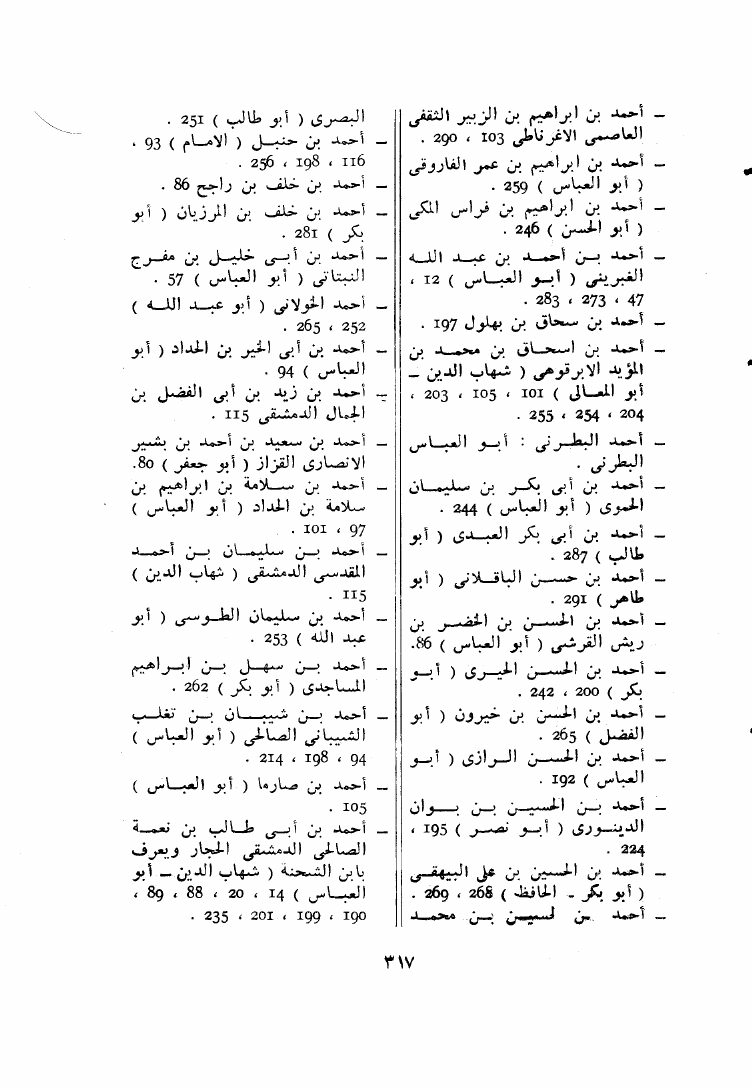 — أحمد بن ابراهيم بن الزبير الثقفى
العاصمى الاغرناطى 103 ، 290 .
— أحمد بن ابراهيم بن عمر الفاروقى
( أبو العباس ) 259 .
— أحمد بن ابراهيم بن فراس المكى
( أبو الحسن ) 246 .
— أحمد بـن أحمـد بن عبـد اللـه
الغبرينى ( أبـو العبـاس ) 12 ،
47 ، 273 ، 283 .
— أحمد بن سحاق بن بهلول 197 .
— أحمد بن اسحـاق بن محمـد بن
المؤيد الابرقوهى ( شهاب الدين —
أبو المعـالى ) 101 ، 105 ، 203 ،
204 ، 254 ، 255 .
— أحمد البطـرنى : أبـو العبـاس
البطرنى .
— أحمد بن أبى بكـر بن سليمـان
الحموى ( أبو العباس ) 244 .
— أحمد بن أبى بكر العبـدى ( أبو
طالب ) 287 .
— أحمد بن حسـن الباقـلانى ( أبو
طاهر ) 291 .
— أحمد بن الحسـن بن الخضـر بن
ريش القرشى ( أبو العباس ) 86.
— أحمد بن الحسـن الحيـرى ( أبـو
بكر ) 200 ، 242 .
— أحمد بن الحسن بن خيرون ( أبو
الفضل ) 265 .
— أحمد بن الحسـن الـرازى ( أبـو
العباس ) 192 .
— أحمد بـن الحسيـن بـن بـوان
الدينـورى ( أبـو نصـر ) 195 ،
224 .
— أحمد بن الحسين بن على البيهقـى
( أبو بكر ـ الحافظ ) 268 ، 269 .
— أحمـد بن لسيـن بـن محمـد
البصرى ( أبو طالب ) 251 .
— أحمد بن حنبـل ( الامـام ) 93 ،
116 ، 198 ، 256 .
— أحمد بن خلف بن راجح 86 .
— أحمد بن خلف بن المرزبان ( أبو
بكر ) 281 .
— أحمد بن أبـى خليـل بن مفـرج
النبتاتى ( أبو العباس ) 57 .
— أحمد الخولانى ( أبو عبـد اللـه )
252 ، 265 .
— أحمد بن أبى الخير بن الحداد ( أبو
العباس ) 94 .
— أحمد بن زيد بن أبى الفضل بن
الجمال الدمشقى 115 .
— أحمد بن سعيد بن أحمد بن بشير
الانصارى القزاز ( أبو جعفر ) 80.
— أحمد بن سـلامة بن ابراهيم بن
سلامة بن الحداد ( أبو العباس )
97 ، 101 .
— أحمد بـن سليمـان بـن أحمـد
المقدسى الدمشقى ( شهاب الدين )
115 .
— أحمد بن سليمان الطـوسى ( أبو
عبد الله ) 253 .
— أحمد بـن سهـل بـن ابـراهيم
المساجدى ( أبو بكر ) 262 .
— أحمد بـن شيبـان بـن تغلـب
الشيبانى الصالحى ( أبو العباس )
94 ، 198 ، 214 .
— أحمد بن صارما ( أبو العباس )
105 .
— أحمد بن أبـى طـالب بن نعمـة
الصالحى الدمشقى الحجار ويعرف
بابن الشحنة ( شهاب الدين — أبو
العباس ) 14 ، 20 ، 88 ، 89 ،
190 ، 199 ، 201 ، 235 .
٣١٧